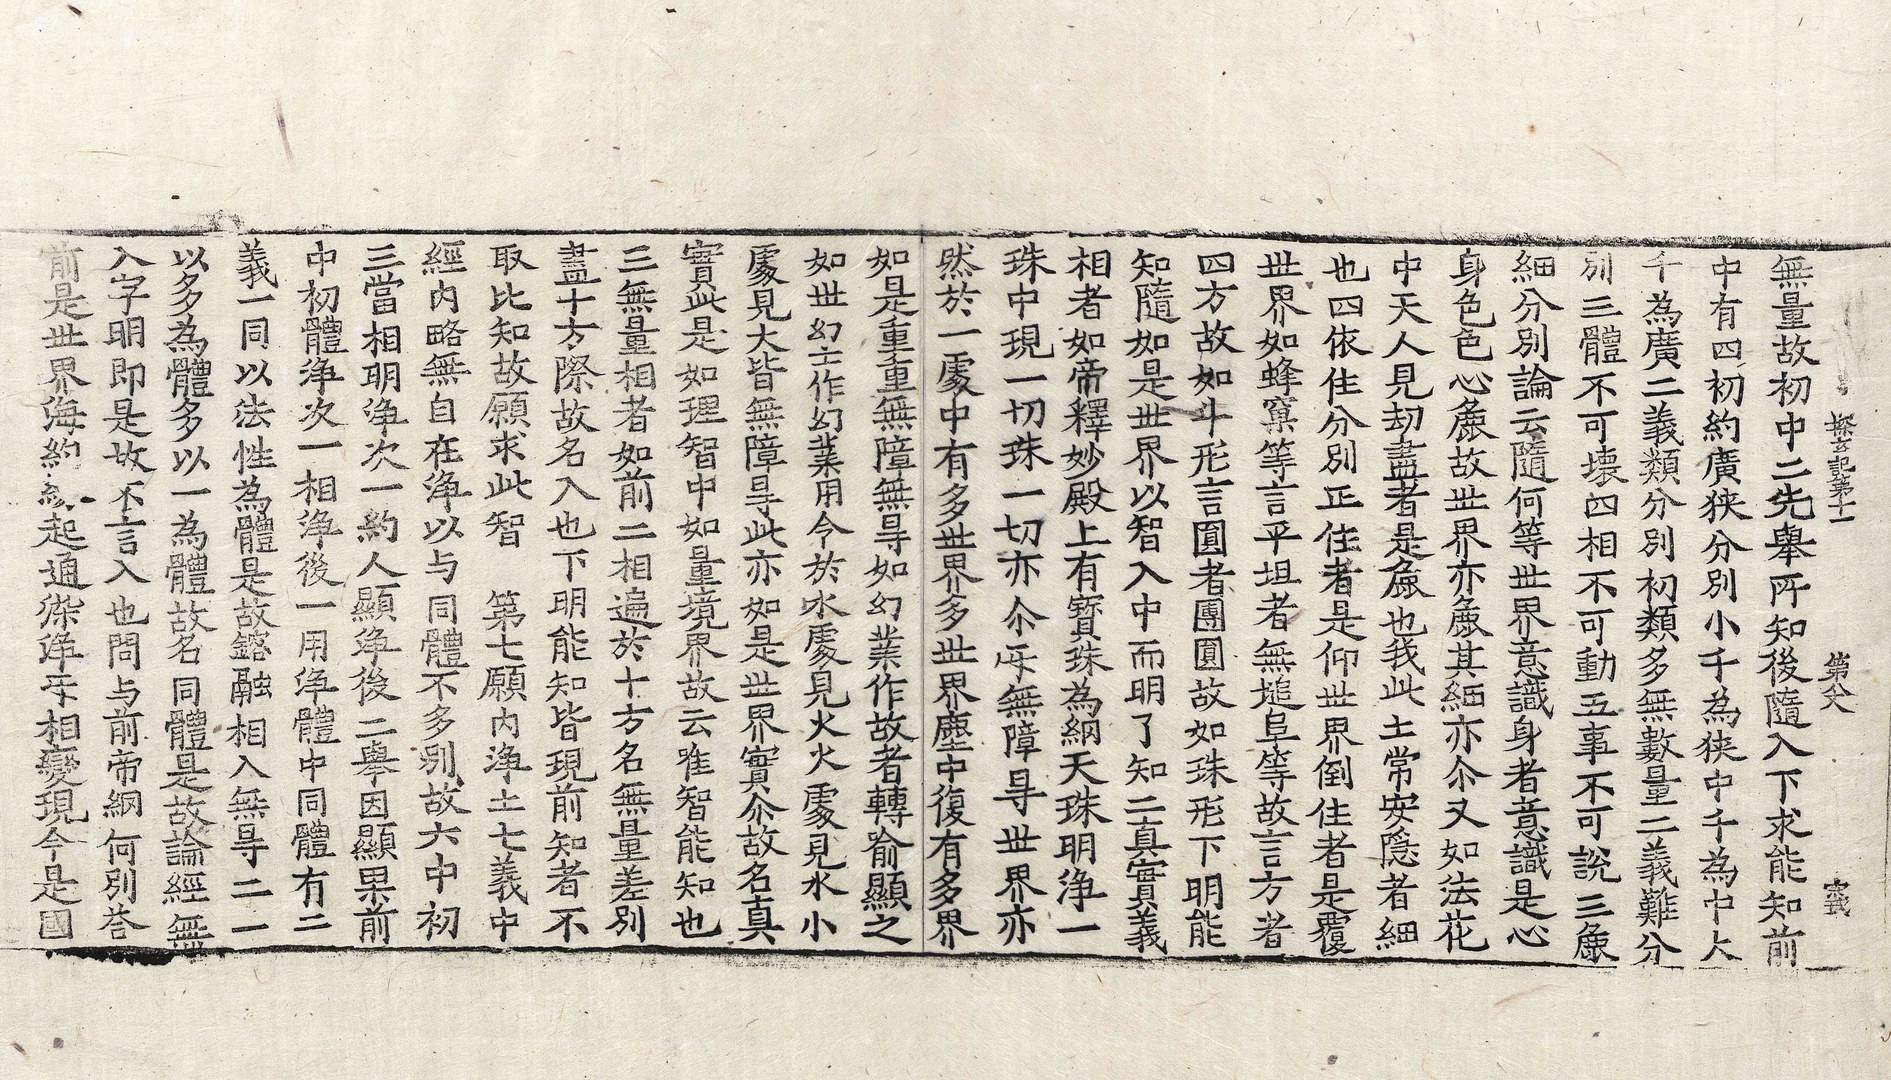 探玄記第十一　第六　義
無量故初中二先舉所知後隨入下求能知前
中有四初約廣狹分別小千為狹中千為中大
千為廣二義類分別初類多無數量二義難分
別三體不可壞四相不可動五事不可說三麁
細分別論云隨何等世界意識身者意識是心
身色色心麁故世界亦麁其細亦尒又如法花
中天人見劫盡者是麁也我此土常安隱者細
也四依住分別正住者是仰世界倒住者是覆
世界如蜂窠等言平坦者無塠阜等故言方者
四方故如斗形言圓者團圓故如珠形下明能
知隨如是世界以智入中而明了知二真實義
相者如帝釋妙殿上有寶珠為網天珠明淨一
珠中現一切珠一切亦尒㸦無障㝵世界亦
然於一處中有多世界多世界塵中復有多界
如是重重無障無㝵如幻業作故者轉喻顯之
如世幻士作幻業用令於水處見火火處見水小
處見大皆無障㝵此亦如是世界實尒故名真
實此是如理智中如量境界故云唯智能知也
三無量相者如前二相遍於十方名無量差別
盡十方際故名入也下明能知皆現前知者不
取比知故願求此智　第七願內淨土七義中
經內略無自在淨以与同體不多別故六中初
三當相明淨次一約人顯淨後二舉因顯果前
中初體淨次一相淨後一用淨體中同體有二
義一同以法性為體是故鎔融相入無㝵二一
以多為體多以一為體故名同體是故論經無
入字明即是故不言入也問与前帝網何別荅
前是世界海約緣起通染淨㸦相變現今是國